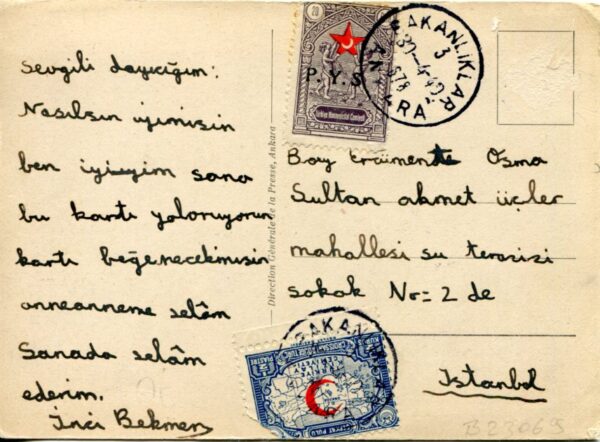 Sevgili dayıcığım:
Nasılsın iyimisin
ben iyiyim sana
bu kartı yolluyorum
kartı beğenecekmisin
anneanneme selâm
Sanada selâm
ederim.
İnci Bekmen
Direction Générale de la Presse, Ankara
20
P.Y.S
Türkiye Himayeietfal Cemiyeti
BAKANLIKLAR
3
30-4-40
ANKARA
Bay Ercümente Osma
Sultan ahmet üçler
mahallesi su terazisi
sokak No=2 de
İstanbul
BAKANLIKLAR
B23069